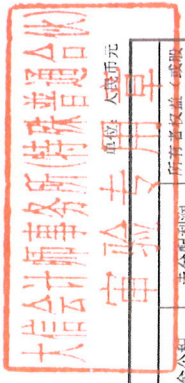 大信会计师事务所(特殊普通合伙)
审验专用章
单位：人民币元
所有者权益（或股
未分配利润